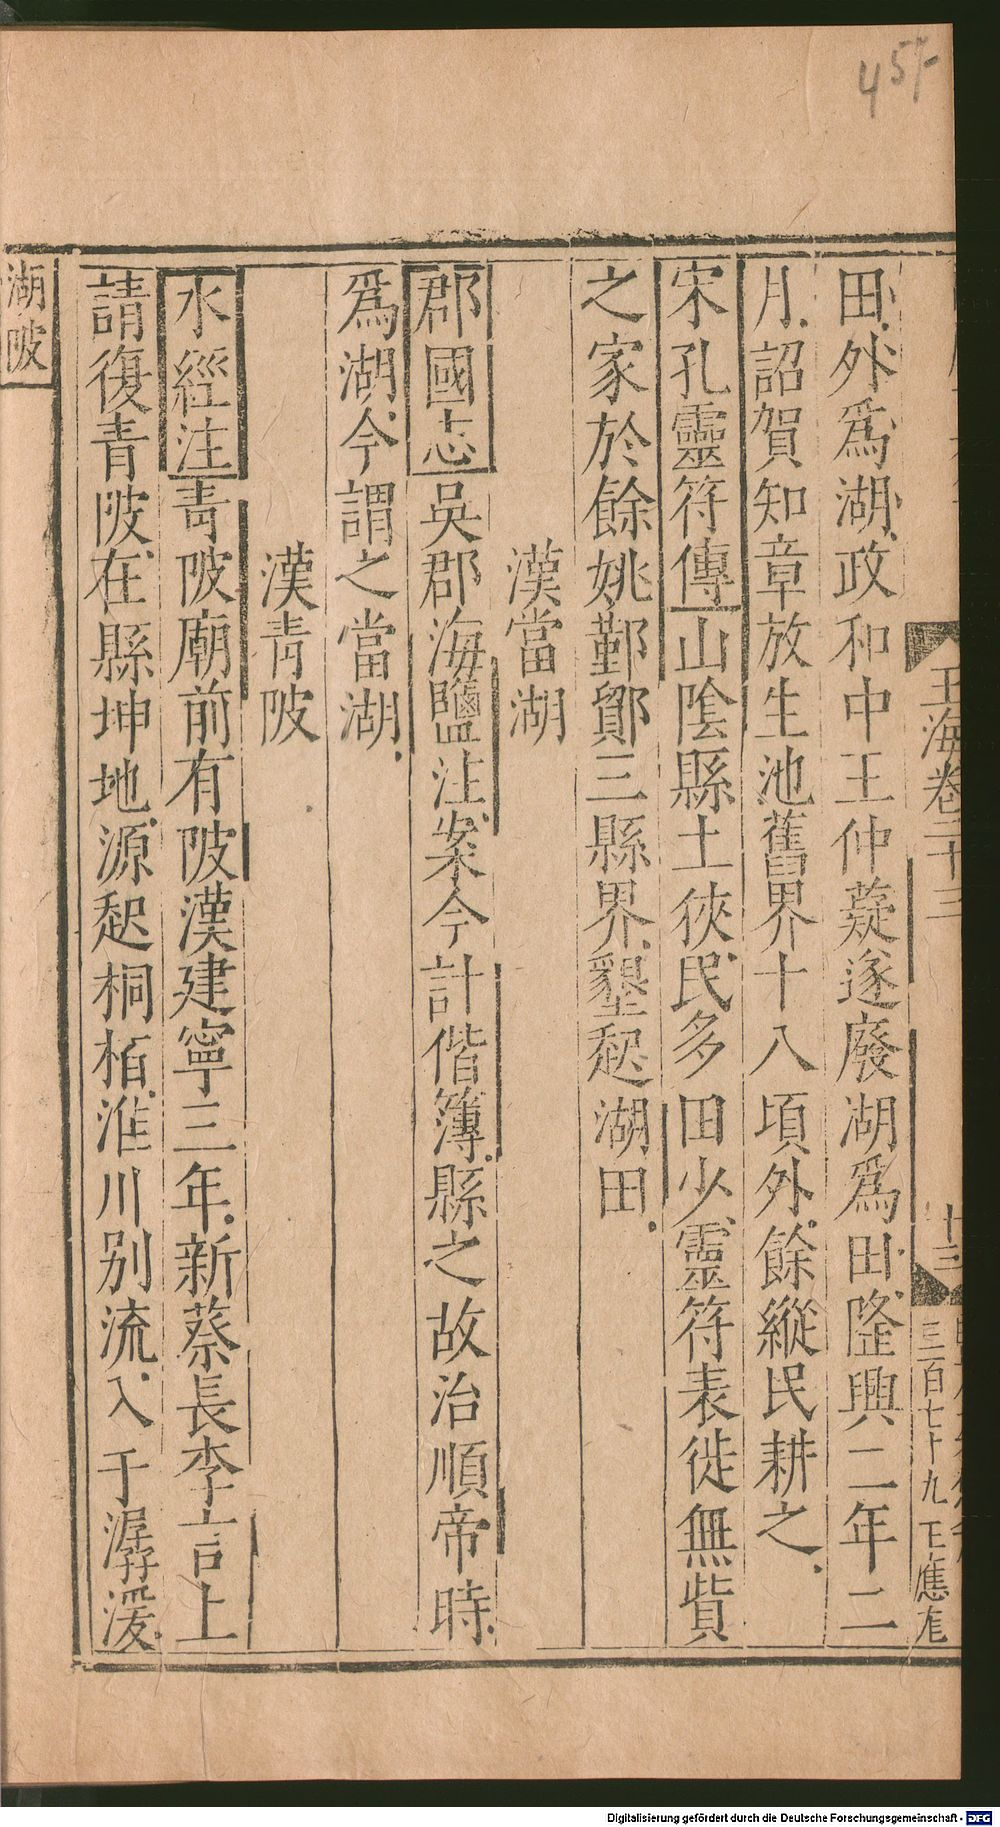 45
田外爲湖政和中王仲薿遂廢湖爲田隆興二年二
月詔賀知章放生池舊界十八頃外餘縱民耕之
宋孔靈符傳山陰縣土狹民多田少靈符表徙無貲
之家於餘姚鄞鄮三縣界墾起湖田
漢當湖
郡國志吳郡海鹽注案今計偕簿縣之故治順帝時
爲湖今謂之當湖
漢青陂
水經注青陂廟前有陂漢建寧三年新蔡長李言上
請復青陂在縣坤地源起桐栢淮川别流入于潺湲
湖陂
玉海卷二十三
十三
三百七十九
Digitalisierung gefördert durch die Deutsche Forschungsgemeinschaft - DFG